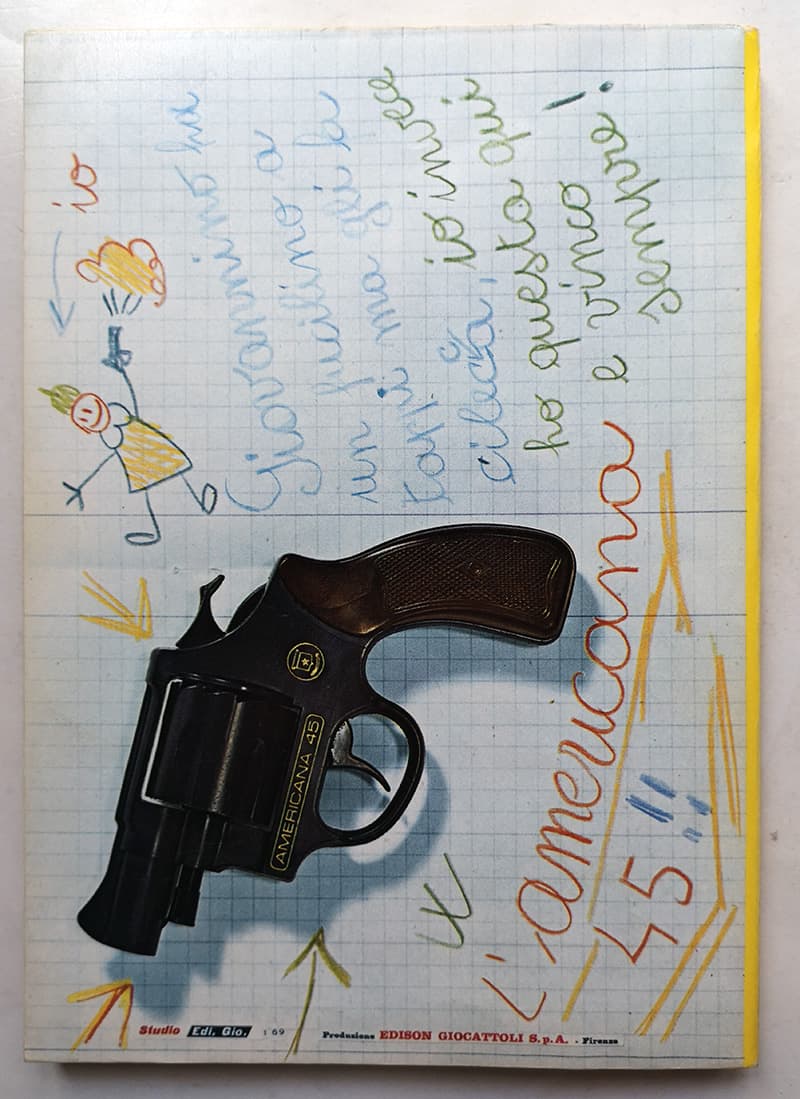 io
Giovannino ha
un fucilino a
tappi ma gli fa
cilecca, io invece
ho questa qui
e vinco
sempre!
L'americana
45!!
AMERICANA 45
Studio Edi. Gio. 1 69
Produzione EDISON GIOCATTOLI S.p.A. - Firenze